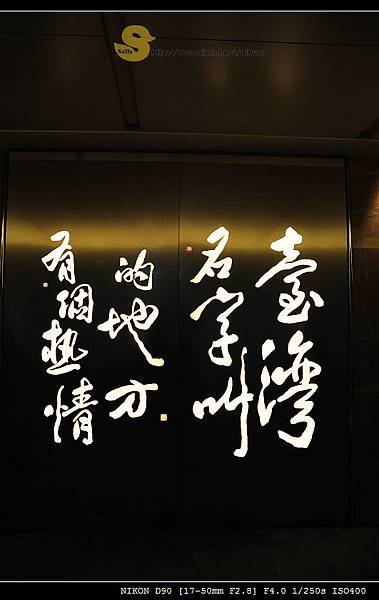 Sally
有個熱情
的地方
名字叫
臺灣
NIKON D90 [17-50mm F2.8] F4.0 1/250s ISO400